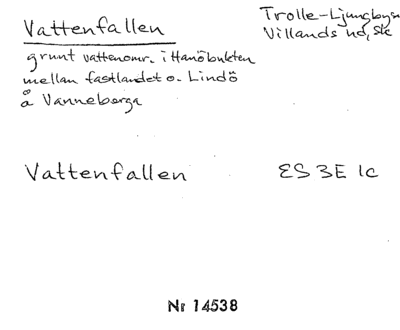 Vattenfallen
Trolle-Ljungbysn
Villands hd, Sk
grunt vattenomr. i Hanöbukten
mellan fastlandet o. Lindö
å Vanneberga
Vattenfallen
ES 3E 1c
Nr 14538